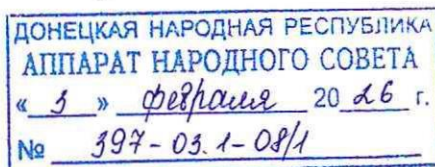 ДОНЕЦКАЯ НАРОДНАЯ РЕСПУБЛИКА
АППАРАТ НАРОДНОГО СОВЕТА
« 3 » февраля 20 26 г.
№ 397-03.1-08/1